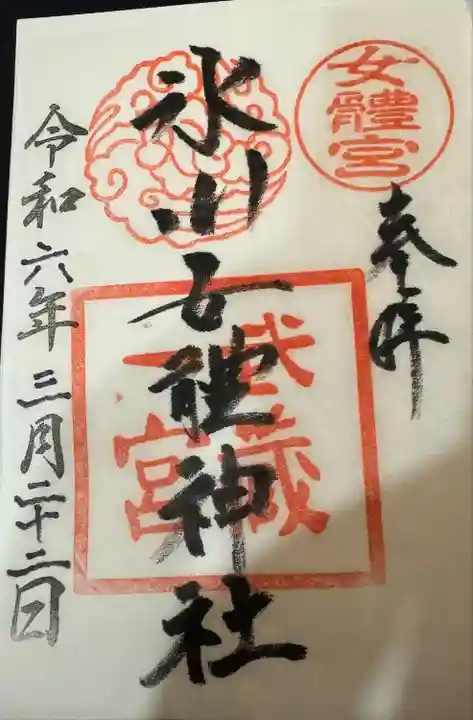 女體宮
奉拝
氷川女體神社
武蔵
一宮
令和六年三月二十二日